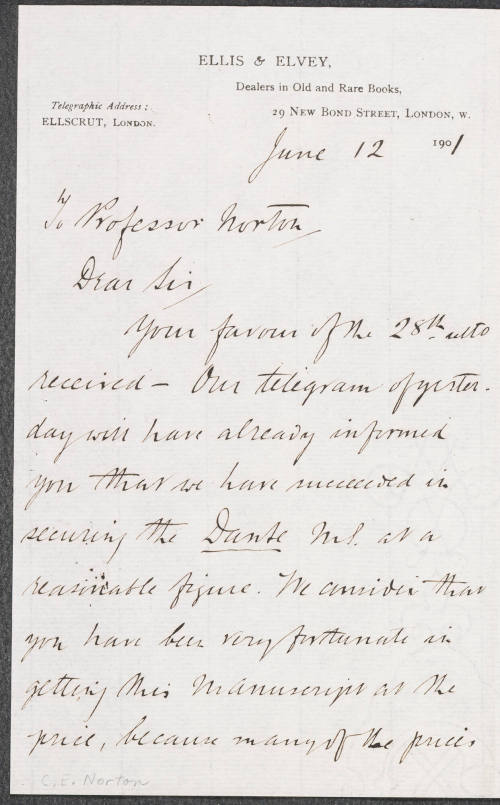 ELLIS & ELVEY,
Dealers in Old and Rare Books,
29 NEW BOND STREET, LONDON, W.
Telegraphic Address:
ELLSCRUT, LONDON.
June 12 1901
To Professor Norton
Dear Sir,
Your favour of the 28th ulto
received – Our telegram of yester-
day will have already informed
you that we have succeeded in
securing the Dante MS. at a
reasonable figure. We consider that
you have been very fortunate in
getting this Manuscript at the
price, because many of the prices
C. E. Norton